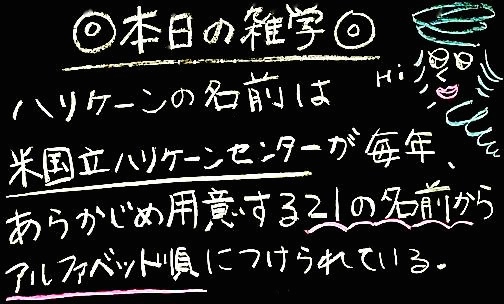 ◎本日の雑学◎
Hi
ハリケーンの名前は
米国立ハリケーンセンターが毎年、
あらかじめ用意する21の名前から
アルファベット順につけられている。